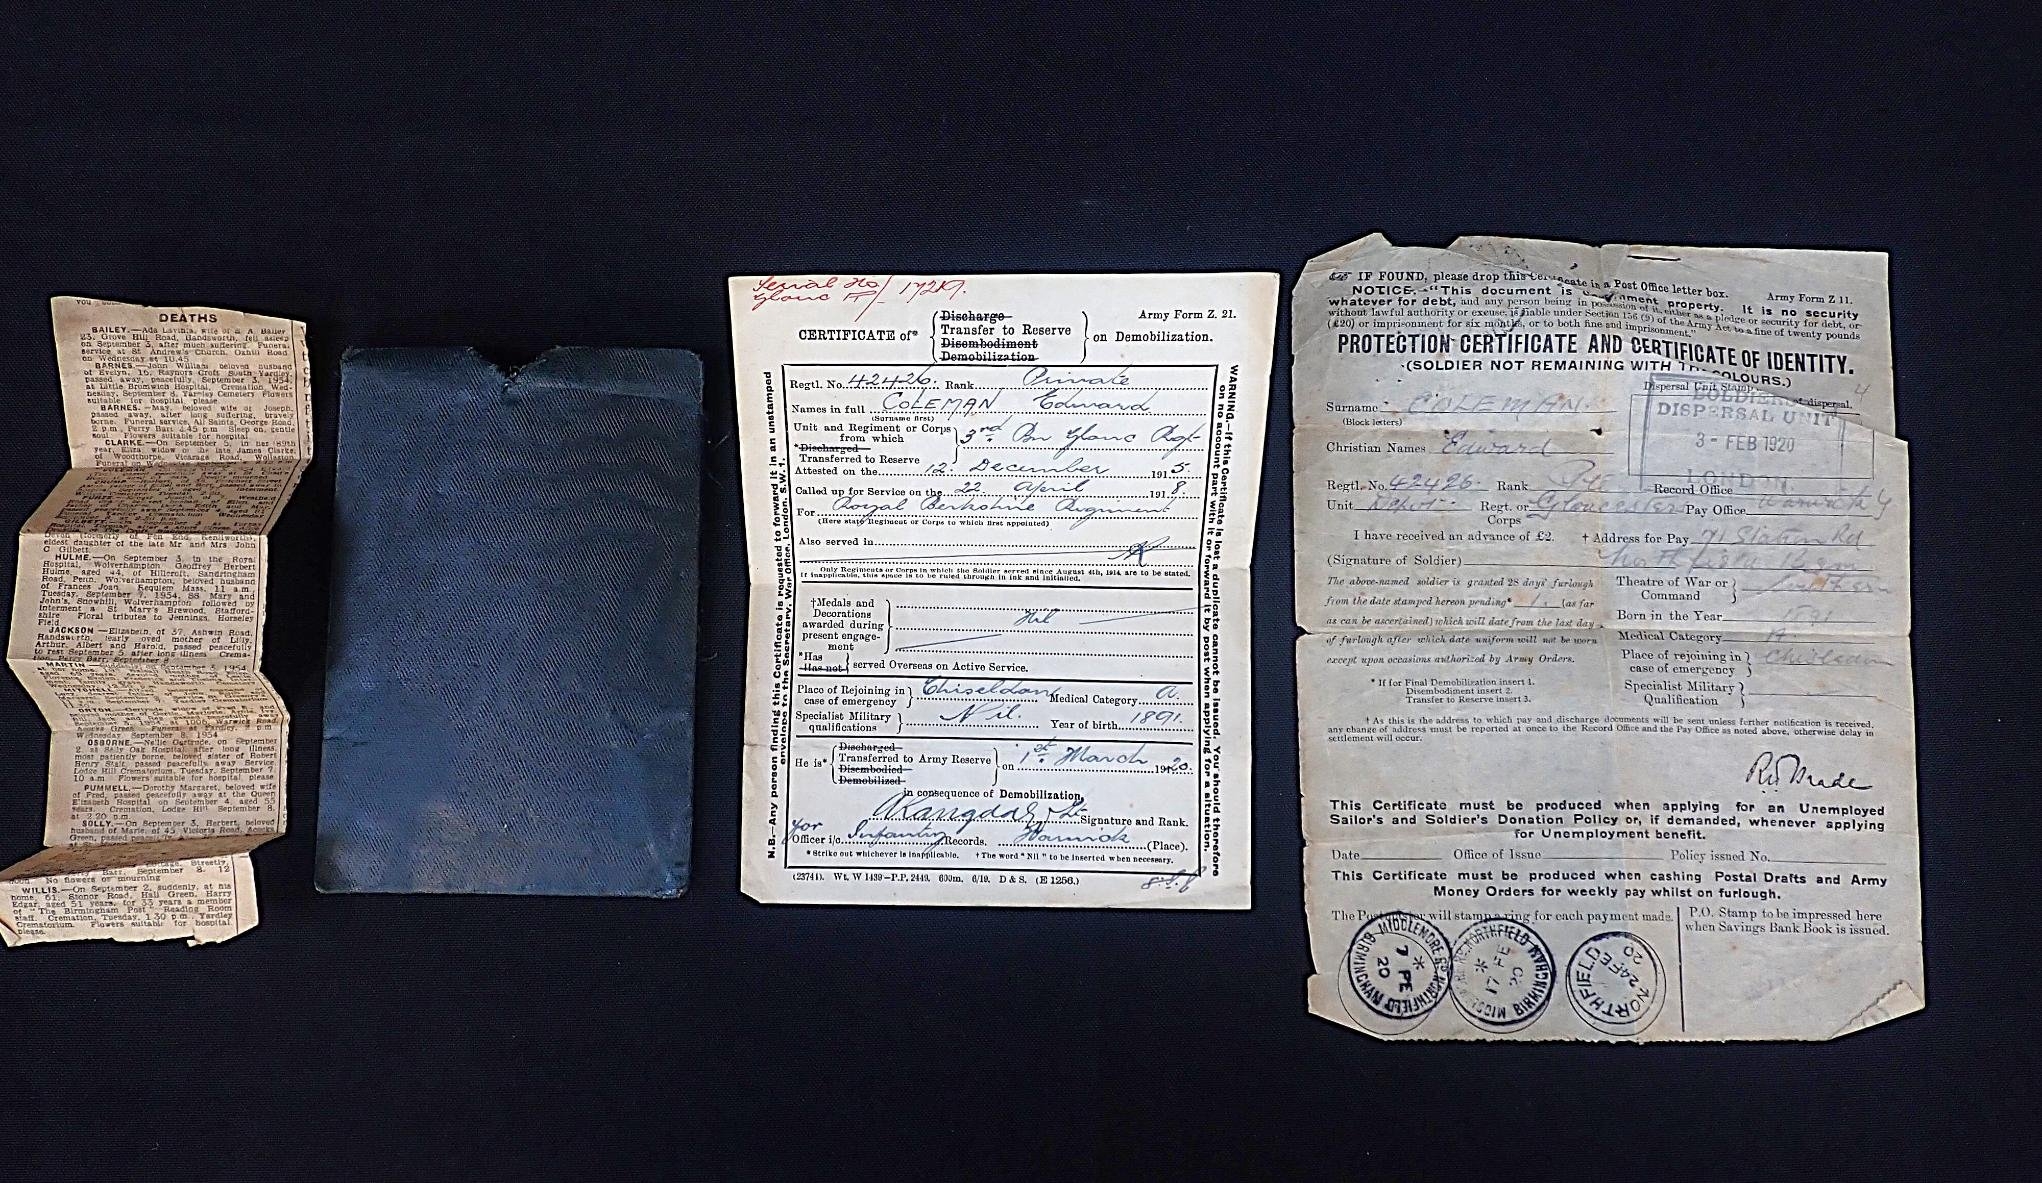 DEATHS
BAILEY.—Ada Lavinia, wife of S. A. Bailey
23, Grove Hill Road, Handsworth, fell asleep
on September 3, after much suffering. Funeral
service at St Andrew's Church, Oxhill Road
on Wednesday at 10.45
BARNES.—John William beloved husband
of Evelyn, 16, Raynors Croft South Yardley,
passed away, peacefully, September 3, 1954,
at Little Bromwich Hospital. Cremation, Wed-
nesday, September 8, Yardley Cemetery Flowers
suitable for hospital please.
BARNES.—May, beloved wife of Joseph,
passed away, after long suffering, bravely
borne. Funeral service, All Saints, George Road,
2 p.m., Perry Barr 2.45 p.m. Sleep on, gentle
soul. Flowers suitable for hospital.
CLARKE.—On September 5, in her 89th
year, Eliza, widow of the late James Clarke,
of Woodthorpe, Vicarage Road, Wollaston.
Funeral on Wednesday
Devon (formerly of Fen End, Kenilworth),
eldest daughter of the late Mr and Mrs. John
C Gilbett.
HULME.—On September 3, in the Royal
Hospital, Wolverhampton Geoffrey Herbert
Hulme, aged 44, of Hillcroft, Sandringham
Road, Penn, Wolverhampton, beloved husband
of Frances Joan. Requiem Mass, 11 a.m.,
Tuesday, September 7, 1954, SS Mary and
John's, Snowhill, Wolverhampton followed by
interment at St Mary's Brewood, Stafford-
shire Floral tributes to Jennings, Horseley
Field.
JACKSON —Elizabeth, of 37, Ashwin Road,
Handsworth, dearly loved mother of Lilly,
Arthur, Albert and Harold, passed peacefully
to rest September 5 after long illness Crema-
tion, Perry Barr, September 8
MARTIN
MITCHELL
ORTON.—Gertrude,
Wednesday September 8, 1954
OSBORNE.—Nellie Gertrude, on September
2, at Selly Oak Hospital, after long illness,
most patiently borne, beloved sister of Robert
Henry Stait, passed peacefully away Service,
Lodge Hill Crematorium, Tuesday, September 7,
10 a.m Flowers suitable for hospital, please
PUMMELL.—Dorothy Margaret, beloved wife
of Fred, passed peacefully away at the Queen
Elizabeth Hospital on September 4, aged 55
years. Cremation, Lodge Hill September 8,
at 2.20 p.m.
SOLLY.—On September 3, Herbert, beloved
husband of Marie, of 45 Victoria Road, Acocks
Green, passed
Streetly,
Barr, September 8, 12
noon. No flowers or mourning
WILLIS.—On September 2, suddenly, at his
home, 61, Stonor Road, Hall Green, Harry
Edgar, aged 51 years, for 33 years a member
of "The Birmingham Post" Reading Room
staff. Cremation, Tuesday, 1.30 p.m., Yardley
Crematorium. Flowers suitable for hospital
please.
Serial No/ 17219.
Glouc R/
Army Form Z. 21.
CERTIFICATE of* Discharge
Transfer to Reserve
Disembodiment
Demobilization on Demobilization.
Regtl. No. 42426. Rank Private
Names in full COLEMAN Edward
(Surname first)
Unit and Regiment or Corps
from which 3rd Bn Glouc Regt
*Discharged
Transferred to Reserve
Attested on the 12 December 1915.
Called up for Service on the 22 April 1918.
For Royal Berkshire Regiment
(Here state Regiment or Corps to which first appointed)
Also served in
Only Regiments or Corps in which the Soldier served since August 4th, 1914, are to be stated.
If inapplicable, this space is to be ruled through in ink and initialled.
†Medals and
Decorations
awarded during
present engage-
ment Nil
*Has
Has not served Overseas on Active Service.
Place of Rejoining in
case of emergency Chiseldon Medical Category A.
Specialist Military
qualifications Nil. Year of birth 1891.
He is* Discharged
Transferred to Army Reserve
Disembodied
Demobilized on 1st March 1920.
in consequence of Demobilization.
Signature and Rank.
for
Officer i/c Infantry Records. Warwick (Place).
*Strike out whichever is inapplicable. †The word "Nil" to be inserted when necessary.
(23741). Wt. W 1439—P.P. 2449. 600m. 6/19. D & S. (E 1256.)
N.B.—Any person finding this Certificate is requested to forward it in an unstamped
envelope to the Secretary, War Office, London, S.W. 1.
WARNING.—If this Certificate is lost a duplicate cannot be issued. You should therefore
on no account part with it or forward it by post when applying for a situation.
IF FOUND, please drop this Certificate in a Post Office letter box. Army Form Z 11.
NOTICE.—"This document is Government property. It is no security
whatever for debt, and any person being in possession of it, either as a pledge or security for debt, or
without lawful authority or excuse, is liable under Section 156 (9) of the Army Act to a fine of twenty pounds
(£20) or imprisonment for six months, or to both fine and imprisonment."
PROTECTION CERTIFICATE AND CERTIFICATE OF IDENTITY.
(SOLDIER NOT REMAINING WITH THE COLOURS.)
Dispersal Unit Stamp
dispersal.
SOLDIERS
DISPERSAL UNIT
3 - FEB 1920
LONDON.
Surname COLEMAN
(Block letters)
Christian Names Edward
Regtl. No. 42426. Rank Pte Record Office Warwick
Unit Depot Regt. or
Corps Gloucester Pay Office
I have received an advance of £2. † Address for Pay 71 Station Rd
(Signature of Soldier) Northfield
The above-named soldier is granted 28 days' furlough
from the date stamped hereon pending* 1. (as far
as can be ascertained) which will date from the last day
of furlough after which date uniform will not be worn
except upon occasions authorized by Army Orders.
* If for Final Demobilization insert 1.
Disembodiment insert 2.
Transfer to Reserve insert 3.
Theatre of War or
Command Southern
Born in the Year 1891
Medical Category A
Place of rejoining in
case of emergency Chiseldon
Specialist Military
Qualification
† As this is the address to which pay and discharge documents will be sent unless further notification is received,
any change of address must be reported at once to the Record Office and the Pay Office as noted above, otherwise delay in
settlement will occur.
This Certificate must be produced when applying for an Unemployed
Sailor's and Soldier's Donation Policy or, if demanded, whenever applying
for Unemployment benefit.
Date Office of Issue Policy issued No.
This Certificate must be produced when cashing Postal Drafts and Army
Money Orders for weekly pay whilst on furlough.
The Postmaster will stamp a ring for each payment made.
P.O. Stamp to be impressed here
when Savings Bank Book is issued.
MIDDLEMORE RD. NORTHFIELD BIRMINGHAM
7 FE
20
MIDDLEMORE RD. NORTHFIELD BIRMINGHAM
17 FE
20
NORTHFIELD
24 FE
20